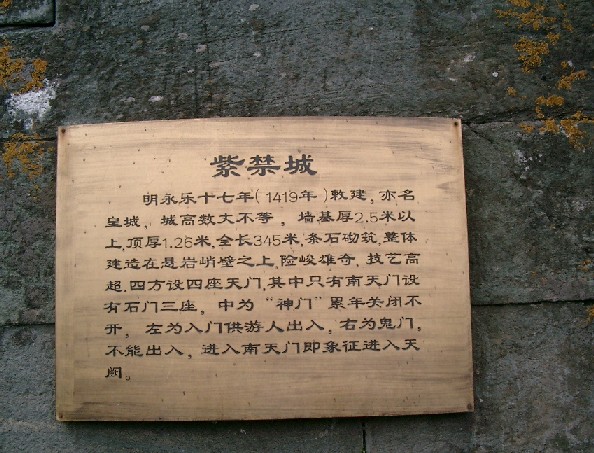 紫禁城
明永乐十七年（1419年）敕建，亦名
皇城，城高数丈不等，墙基厚2.5米以
上，顶厚1.26米，全长345米，条石砌筑，整体
建造在悬岩峭壁之上，险峻雄奇，技艺高
超，四方设四座天门，其中只有南天门设
有石门三座，中为“神门”累年关闭不
开，左为人门供游人出入，右为鬼门，
不能出入，进入南天门即象征进入天
阙。